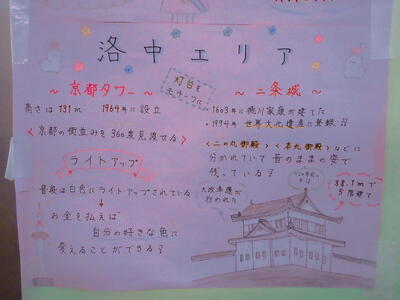 洛中エリア
~ 京都タワー ~
灯台をモチーフに
高さは131m 1964年に設立
<京都の街並みを360度見渡せる>
ライトアップ
普段は白色にライトアップされている
↓
お金を払えば
自分の好きな色に
変えることができる
~ 二条城 ~
・1603年に徳川家康が建てた
・1994年 世界文化遺産に登録
<二の丸御殿>、<本丸御殿>などに
分かれていて昔のままの姿で
残っている
大政奉還が
行われた
38.1mで
5階建て